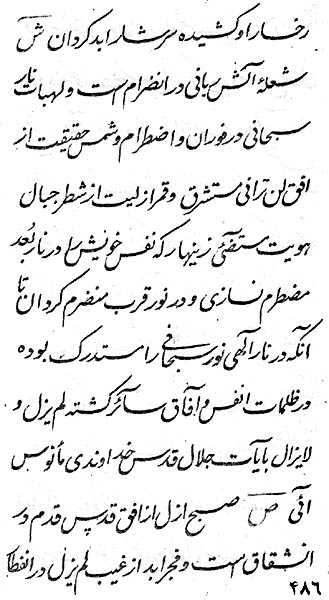 رخسار او کشیده سرشار ابد کردان ش
شعلهٔ آتش ربانی در انضرام است و لهبات نار
سبحانی در فوران و اضطرام و شمس حقیقت از
افق لن ترانی مستشرق و قمر ازلیت از شطر جبال
هویت مستضئ زینهار که نفس خویش را در نار بُعد
مضطرم نسازی و در نور قرب منضرم کردان تا
آنکه در نار الهی نور سبحانی را مستدرک بوده
در ظلمات انفس و آفاق سائر کشته لم یزل و
لا یزال بآیات جلال قدس خداوندی مأنوس
آئی ص صبح ازل از افق قدس قدم در
انشقاق است و فجر ابد از غیب لم یزل در انفطا
۴۸۶